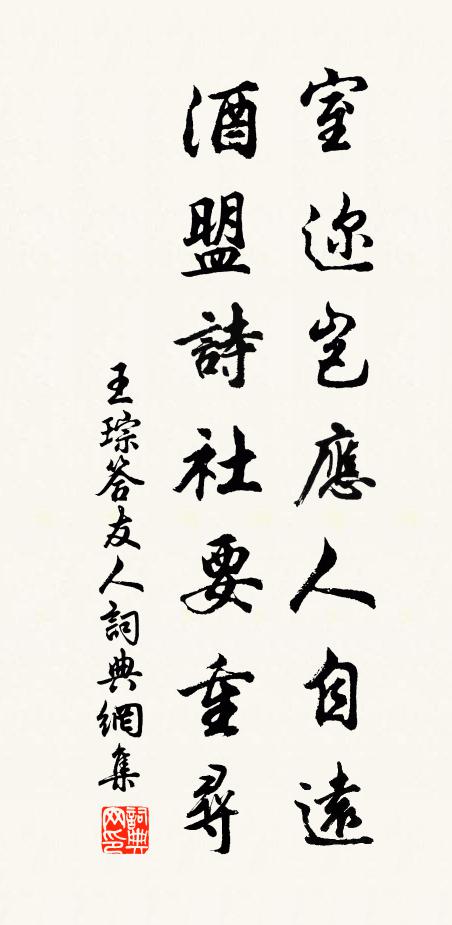 室邇豈應人自遠
酒盟詩社要重尋
王琮答友人詞典網集
詞典网印